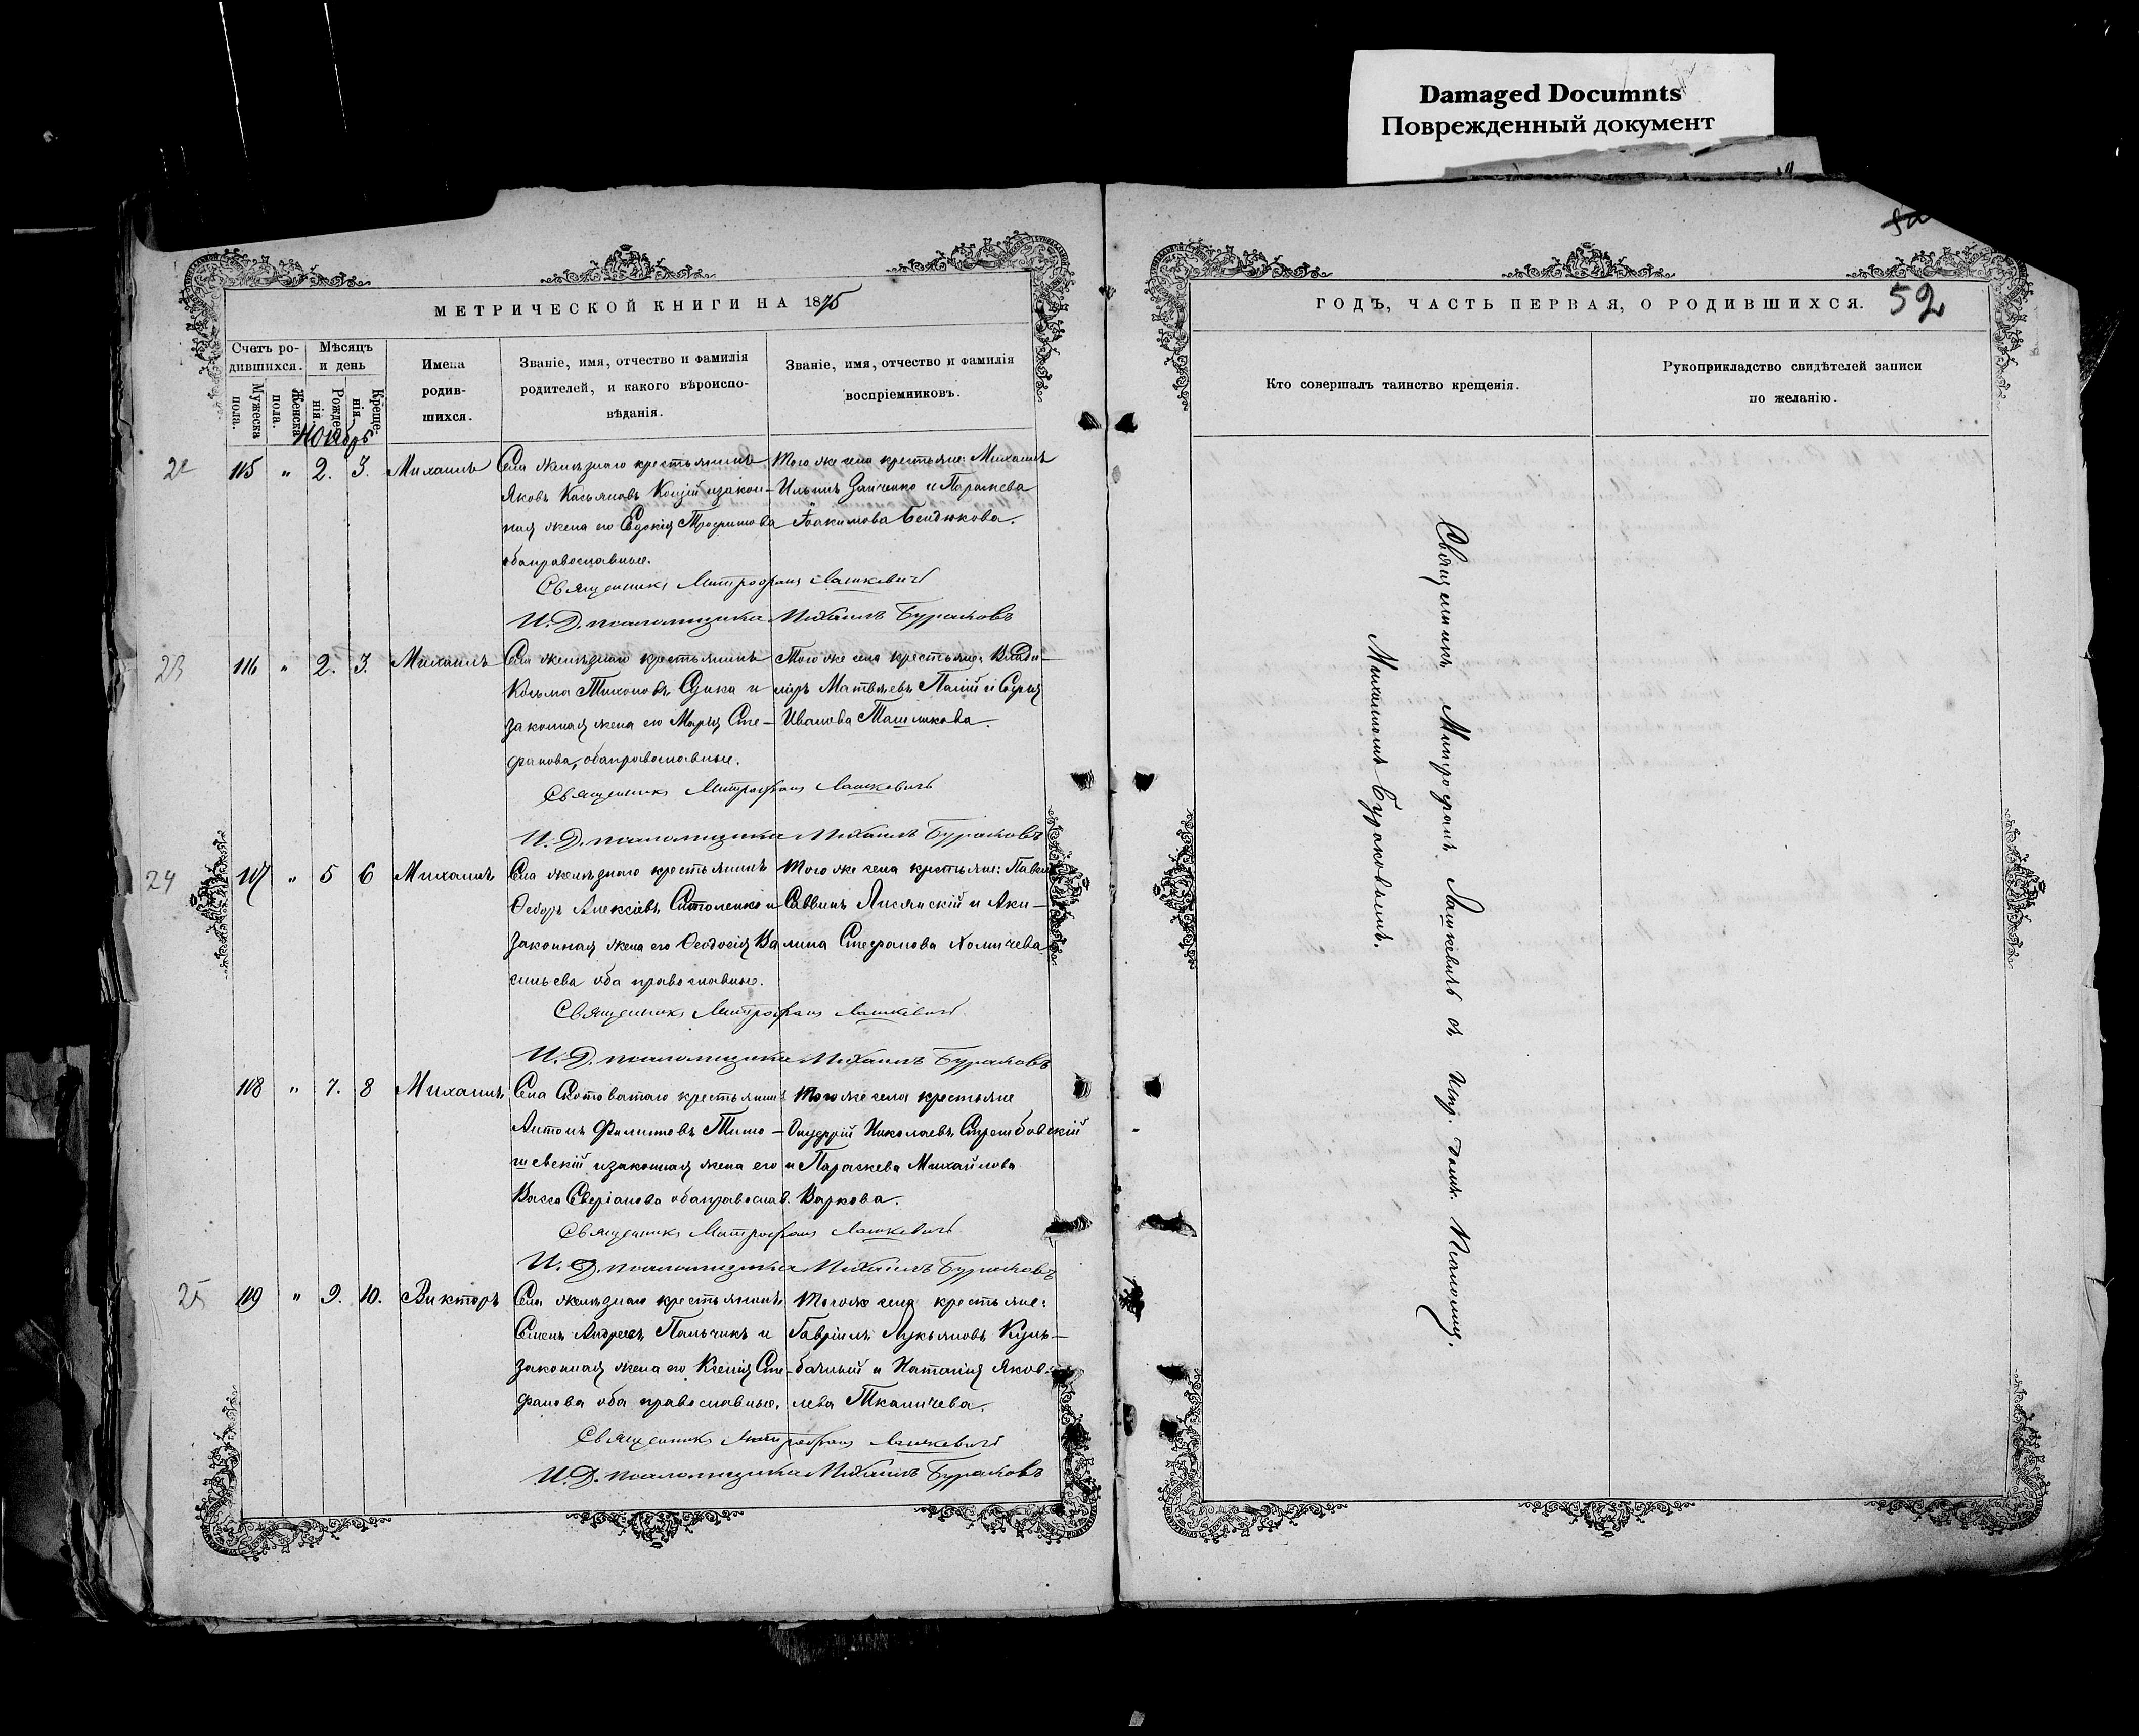 Damaged Documnts
Поврежденный документ
МЕТРИЧЕСКОЙ КНИГИ НА 1875
Счетъ родившихся.
Мѣсяцъ и день
Имена родившихся.
Званіе, имя, отчество и фамилія родителей, и какого вѣроисповѣданія.
Званіе, имя, отчество и фамилія воспріемниковъ.
Мужеска пола.
Женска пола.
Рожденія.
Крещенія.
Ноябрь
22
115 " 2. 3. Михаилъ
Села желѣзнаго крестьянинъ
Яковъ Касьяновъ и закон-
ная жена его Евдокія Трофимова
оба православные.
Того же села крестьяне: Михаилъ
Ильинъ Зайченко и Параскева
Іоакимова Бендюкова.
Священникъ Митрофанъ Лашкевичъ
И. Д. псаломщика Михаилъ Бураковъ
23
116 " 2. 3. Михаилъ
Села желѣзнаго крестьянинъ
Козьма Тихоновъ и
законная жена его Марія Сте-
фанова, оба православные.
Того же села крестьяне: Влади-
міръ Матвѣевъ Палій и Софія
Иванова Ташлыкова.
Священникъ Митрофанъ Лашкевичъ
И. Д. псаломщика Михаилъ Бураковъ
24
117 " 5 6 Михаилъ
Села желѣзнаго крестьянинъ
Ѳедоръ Алексѣевъ Ситоленко и
законная жена его Ѳеодосія Ва
сильева оба православные.
Того же села крестьяне: Павелъ
Саввинъ Лисянскій и Аки-
лина Стефанова Хомичева
Священникъ Митрофанъ Лашкевичъ
И. Д. псаломщика Михаилъ Бураковъ
118 " 7. 8 Михаилъ
Села Скотоватаго крестьянинъ
Антонъ Филиповъ Тимо-
шевскій и законная жена его
Васса Северіанова оба православ.
Того же села крестьяне
Онуфрій Николаевъ Стрембовскій
и Параскева Михайлова
Варкова.
Священникъ Митрофанъ Лашкевичъ
И. Д. псаломщика Михаилъ Бураковъ
25
119 " 9. 10. Викторъ
Села желѣзнаго крестьянинъ
Семенъ Андреевъ Пальчикъ и
законная жена его Ксенія Сте-
фанова оба православные.
Того же села крестьяне:
Гавріилъ Лукьяновъ Куль-
бачный и Наталія Яков-
лева Ткаличева.
Священникъ Митрофанъ Лашкевичъ
И. Д. псаломщика Михаилъ Бураковъ
ГОДЪ, ЧАСТЬ ПЕРВАЯ, О РОДИВШИХСЯ.
52
Кто совершалъ таинство крещенія.
Рукоприкладство свидѣтелей записи
по желанію.
Священникъ Митрофанъ Лашкевичъ съ Исп. долж. Псаломщ.
Михаиломъ Бураковымъ.